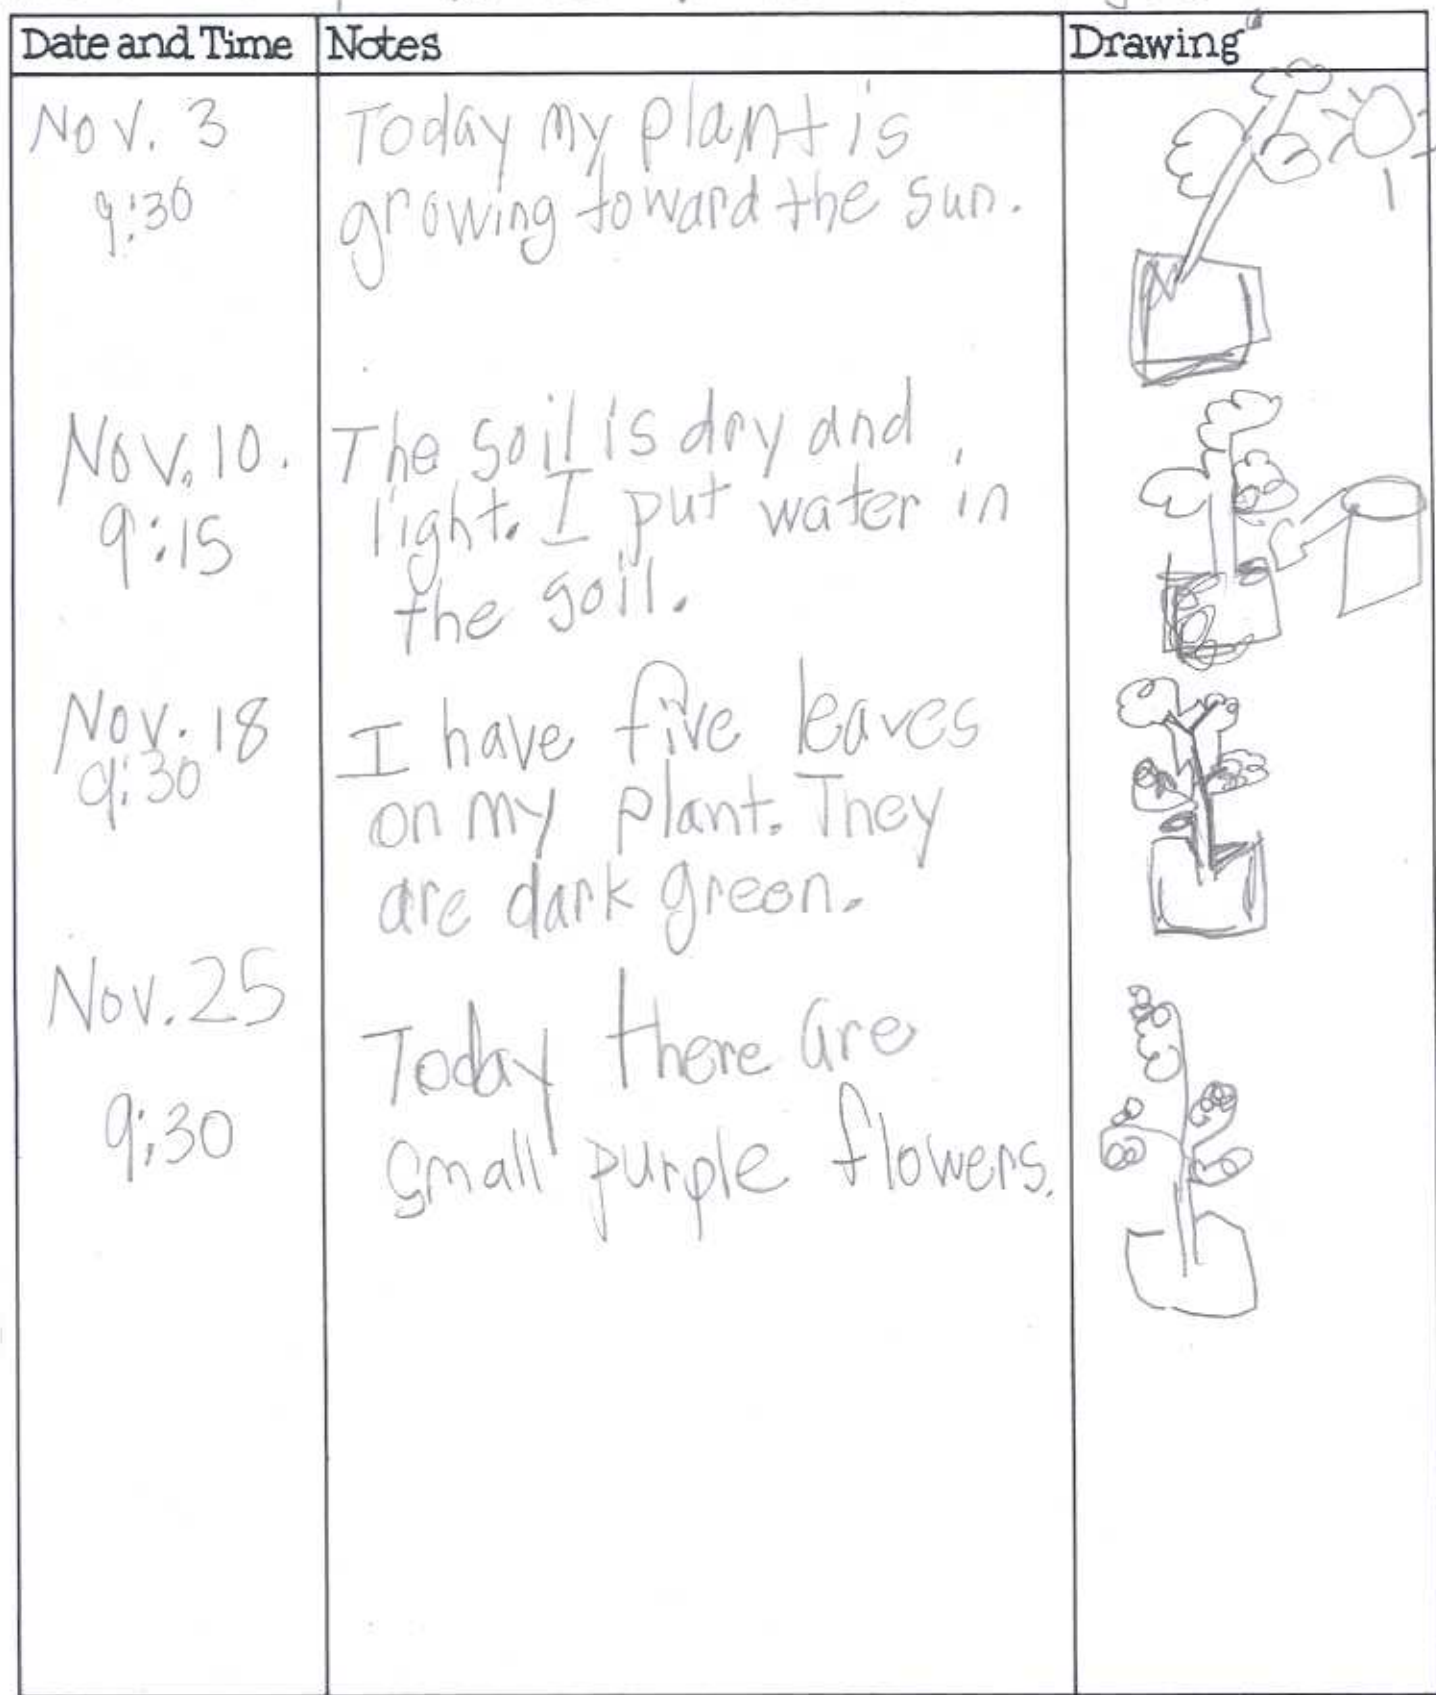 Date and Time Notes Drawing
Nov. 3
9:30
Today my plant is
growing toward the sun.
Nov. 10.
9:15
The soil is dry and
light. I put water in
the soil.
Nov. 18
9:30
I have five leaves
on my plant. They
are dark green.
Nov. 25
9:30
Today there are
small purple flowers.